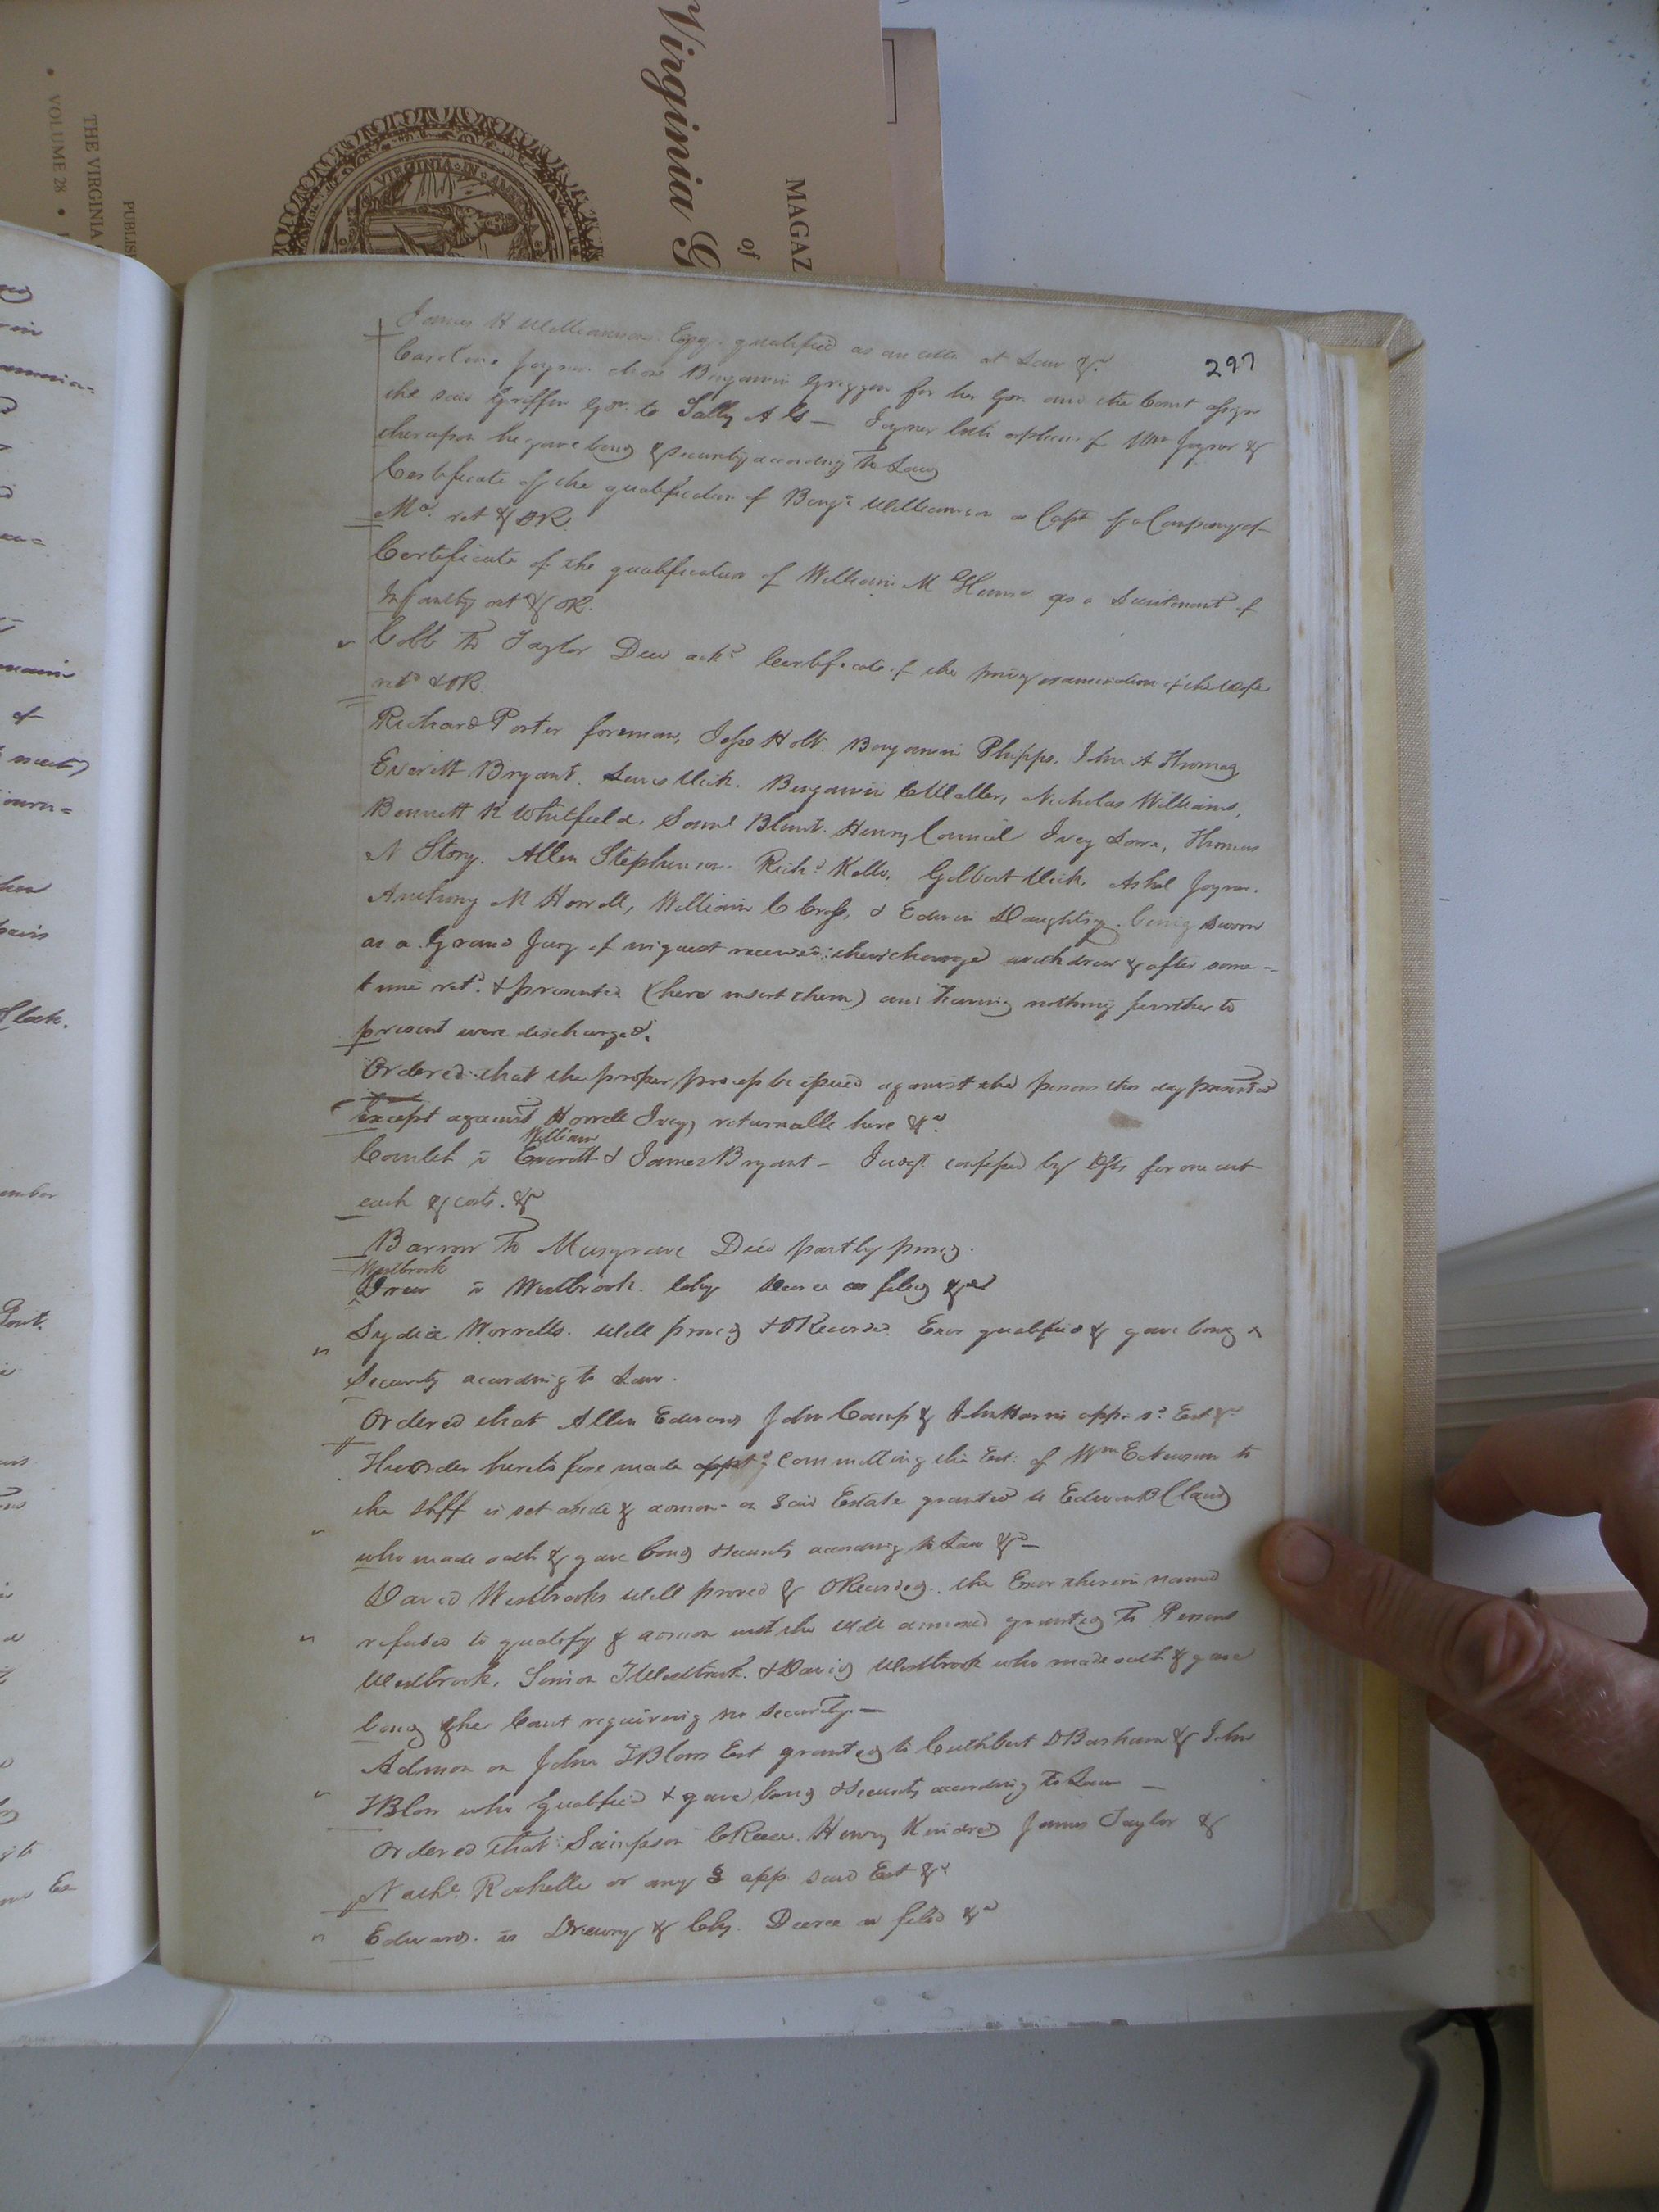 Virginia G
MAGAZ
of
PUBLIS
THE VIRGINIA
VOLUME 28
VIRGINIA IN
297
James H Williamson Esqr. qualified as an atto at Law &c.
Caroline Joyner chose Benjamin Griffin for her Gdn. and the Court assign
the said Griffin Gdn. to Sally A G — Joyner both orphans of Wm Joyner &
thereupon he gave bond & security according to Law
Certificate of the qualification of Benja Williamson as Capt of a Company of
Ma. ret & OR.
Certificate of the qualification of William M as a Lieutenant of
Infantry ret & OR.
Cobb To Taylor Deed ackd Certificate of the privy examination of the wife
retd & OR
Richard Porter foreman, Jesse Holt. Benjamin Phipps, John A Thomas,
Everitt Bryant. Lewis Vick. Benjamin C Waller, Nicholas Williams,
Bennett K Whitfield. Saml Blunt. Henry Council Ivey Lowe, Thomas
N Story. Allen Stephenson. Richd Kello, Gilbert Vick, Ashel Joyner.
Anthony M Howell, William C Cross, & Edwin Daughtry. being sworn
as a Grand Jury of inquest received their charge withdrew & after some-
time retd. & presented (here insert them) and having nothing further to
present were discharged.
Ordered that the proper process be issued against the persons this day presented
Except against Ivey, returnable here &c.
William
vs Everitt & James Bryant — Judgt confessed by Dfts for one cent
each & costs. &c
Barrow To Musgrave Deed partly proved.
Westbrook
Drew vs Westbrook. Chy Decree as filed &c
Lydia Worrells. Will proved & ORecorded. Exor qualified & gave bond &
Security according to Law.
Ordered that Allen Edwards John Camp & John Harris appr. sd. Est &c
The order heretofore made appt committing the Est: of Wm E to
the Shff is set aside & admon. on said Estate granted to Edwin B Claud
who made oath & gave bond & security according to Law &c —
David Westbrooks Will proved & ORecorded. the Exor therein named
refused to qualify & admon with the Will annexed granted To
Westbrook, T Westbrook. & David Westbrook who made oath & gave
bond the Court requiring no security —
Admon on John T Blows Est granted to Cuthbert D Barham & John
T Blow who qualified & gave bond & security according to Law —
Ordered that Sampson C Reese. Henry Kindred James Taylor &
Nathl. Rochelle or any 3 app. said Est &c
Edwards. vs Drewry & Chy. Decree as filed &c